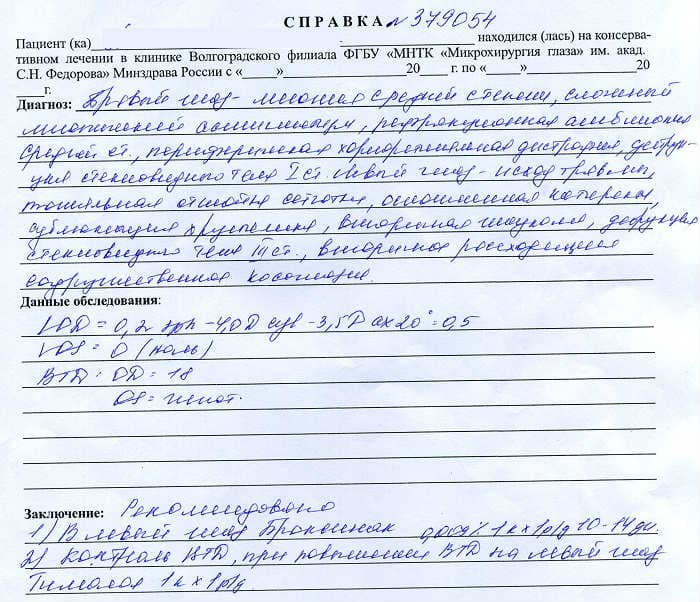 СПРАВКА № 379054
Пациент (ка) находился (лась) на консерва-
тивном лечении в клинике Волгоградского филиала ФГБУ «МНТК «Микрохирургия глаза» им. акад.
С.Н. Федорова» Минздрава России с «____»____________20____ г. по «____»____________20
____г.
Диагноз: Правый глаз - миопия средней степени, сложный
миопический астигматизм, рефракционная амблиопия
средней ст., периферическая хориоретинальная дистрофия, деструк-
ция стекловидного тела I ст. Левый глаз - исход травмы,
тотальная отслойка сетчатки, осложненная катаракта,
сублюксация хрусталика, вторичная глаукома, деструкция
стекловидного тела III ст., вторичное расходящееся
содружественное косоглазие.
Данные обследования:
VOD = 0,2 sph -4,0D cyl -3,5D ax 20° = 0,5
VOS = 0 (ноль)
ВГД: OD = 18
OS = гипот.
Заключение: Рекомендовано
1) В левый глаз Броксинак 0,09% 1к х 1р/д 10-14 дн.
2) Контроль ВГД, при повышении ВГД на левый глаз
Тимолол 1к х 1р/д.